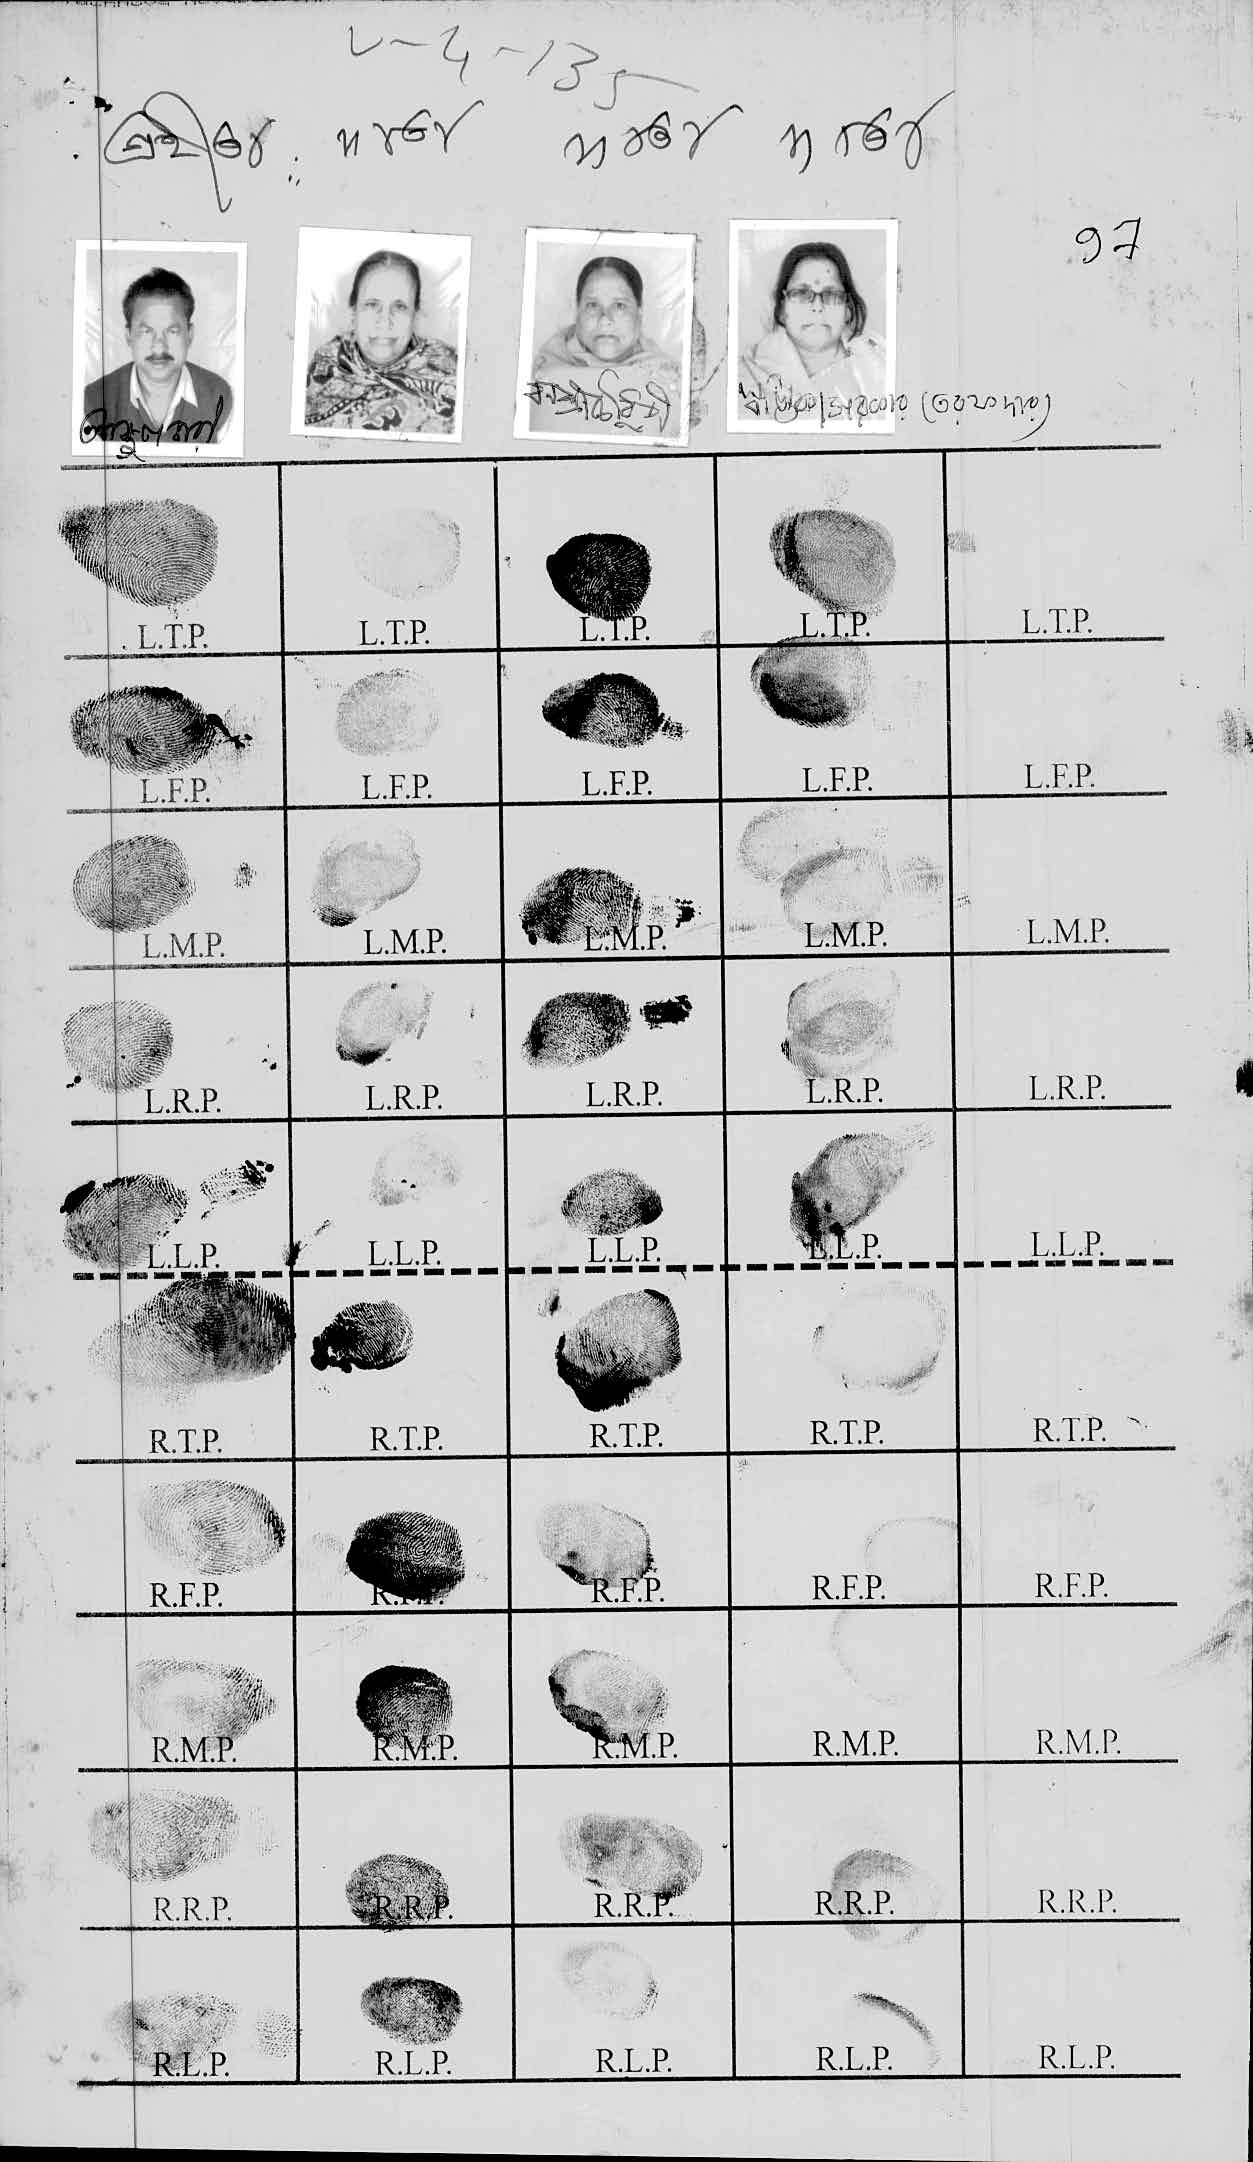 গ্রহীতার দাতার দাতার দাতার
97
L.T.P. L.T.P. L.T.P. L.T.P. L.T.P.
L.F.P. L.F.P. L.F.P. L.F.P. L.F.P.
L.M.P. L.M.P. L.M.P. L.M.P. L.M.P.
L.R.P. L.R.P. L.R.P. L.R.P. L.R.P.
L.L.P. L.L.P. L.L.P. L.L.P. L.L.P.
R.T.P. R.T.P. R.T.P. R.T.P. R.T.P.
R.F.P. R.F.P. R.F.P. R.F.P. R.F.P.
R.M.P. R.M.P. R.M.P. R.M.P. R.M.P.
R.R.P. R.R.P. R.R.P. R.R.P. R.R.P.
R.L.P. R.L.P. R.L.P. R.L.P. R.L.P.